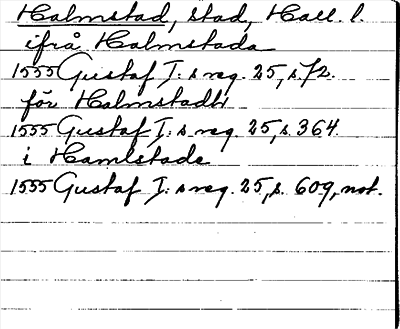 Halmstad, stad, Hall. l.
ifrå Halmstada
1555 Gustaf I:s reg. 25, s. 72.
för Halmstadh
1555 Gustaf I:s reg. 25, s. 364.
i Hamlstade
1555 Gustaf I:s reg. 25, s. 609, not.